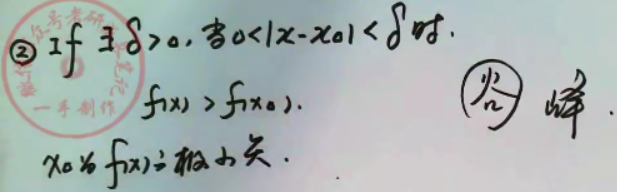 ② If ∃ δ>0, 当0<|x-x0|<δ时.
f(x)>f(x0).
x0为f(x)之极小点.
峰.
一手制作